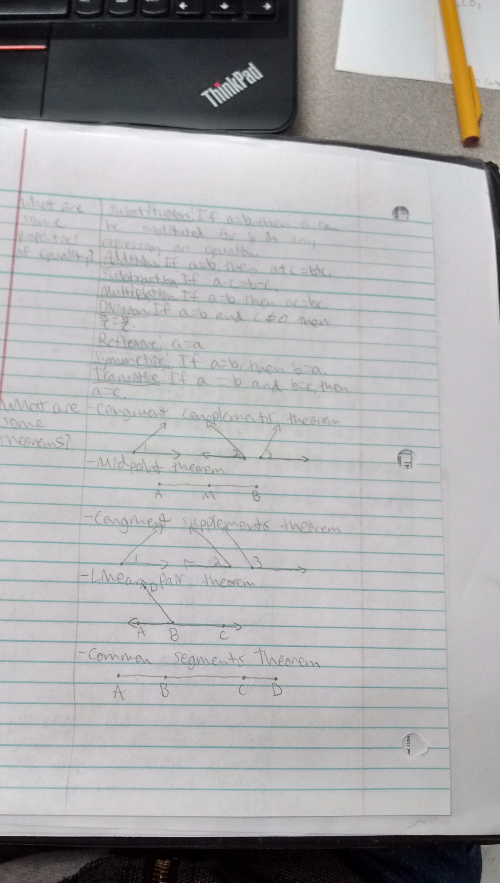 ThinkPad
What are
some
properties
of equality?
Substitution: If a=b, then a can
be substituted for b in any
expression or equation
Addition: If a=b, then a+c=b+c
Subtraction: If a-c=b-c.
If a=b, then ac=bc
Division: If a=b and c≠0, then
Reflexive: a=a
Symmetric: If a=b, then b=a.
If a=b and b=c, then
a=c.
What are
some
theorems?
-Congruent complements theorem
1 2 3
-Midpoint theorem
A M B
-Congruent supplements theorem
1 2 3
-Linear pair theorem
D
A B C
-Common segments Theorem
A B C D